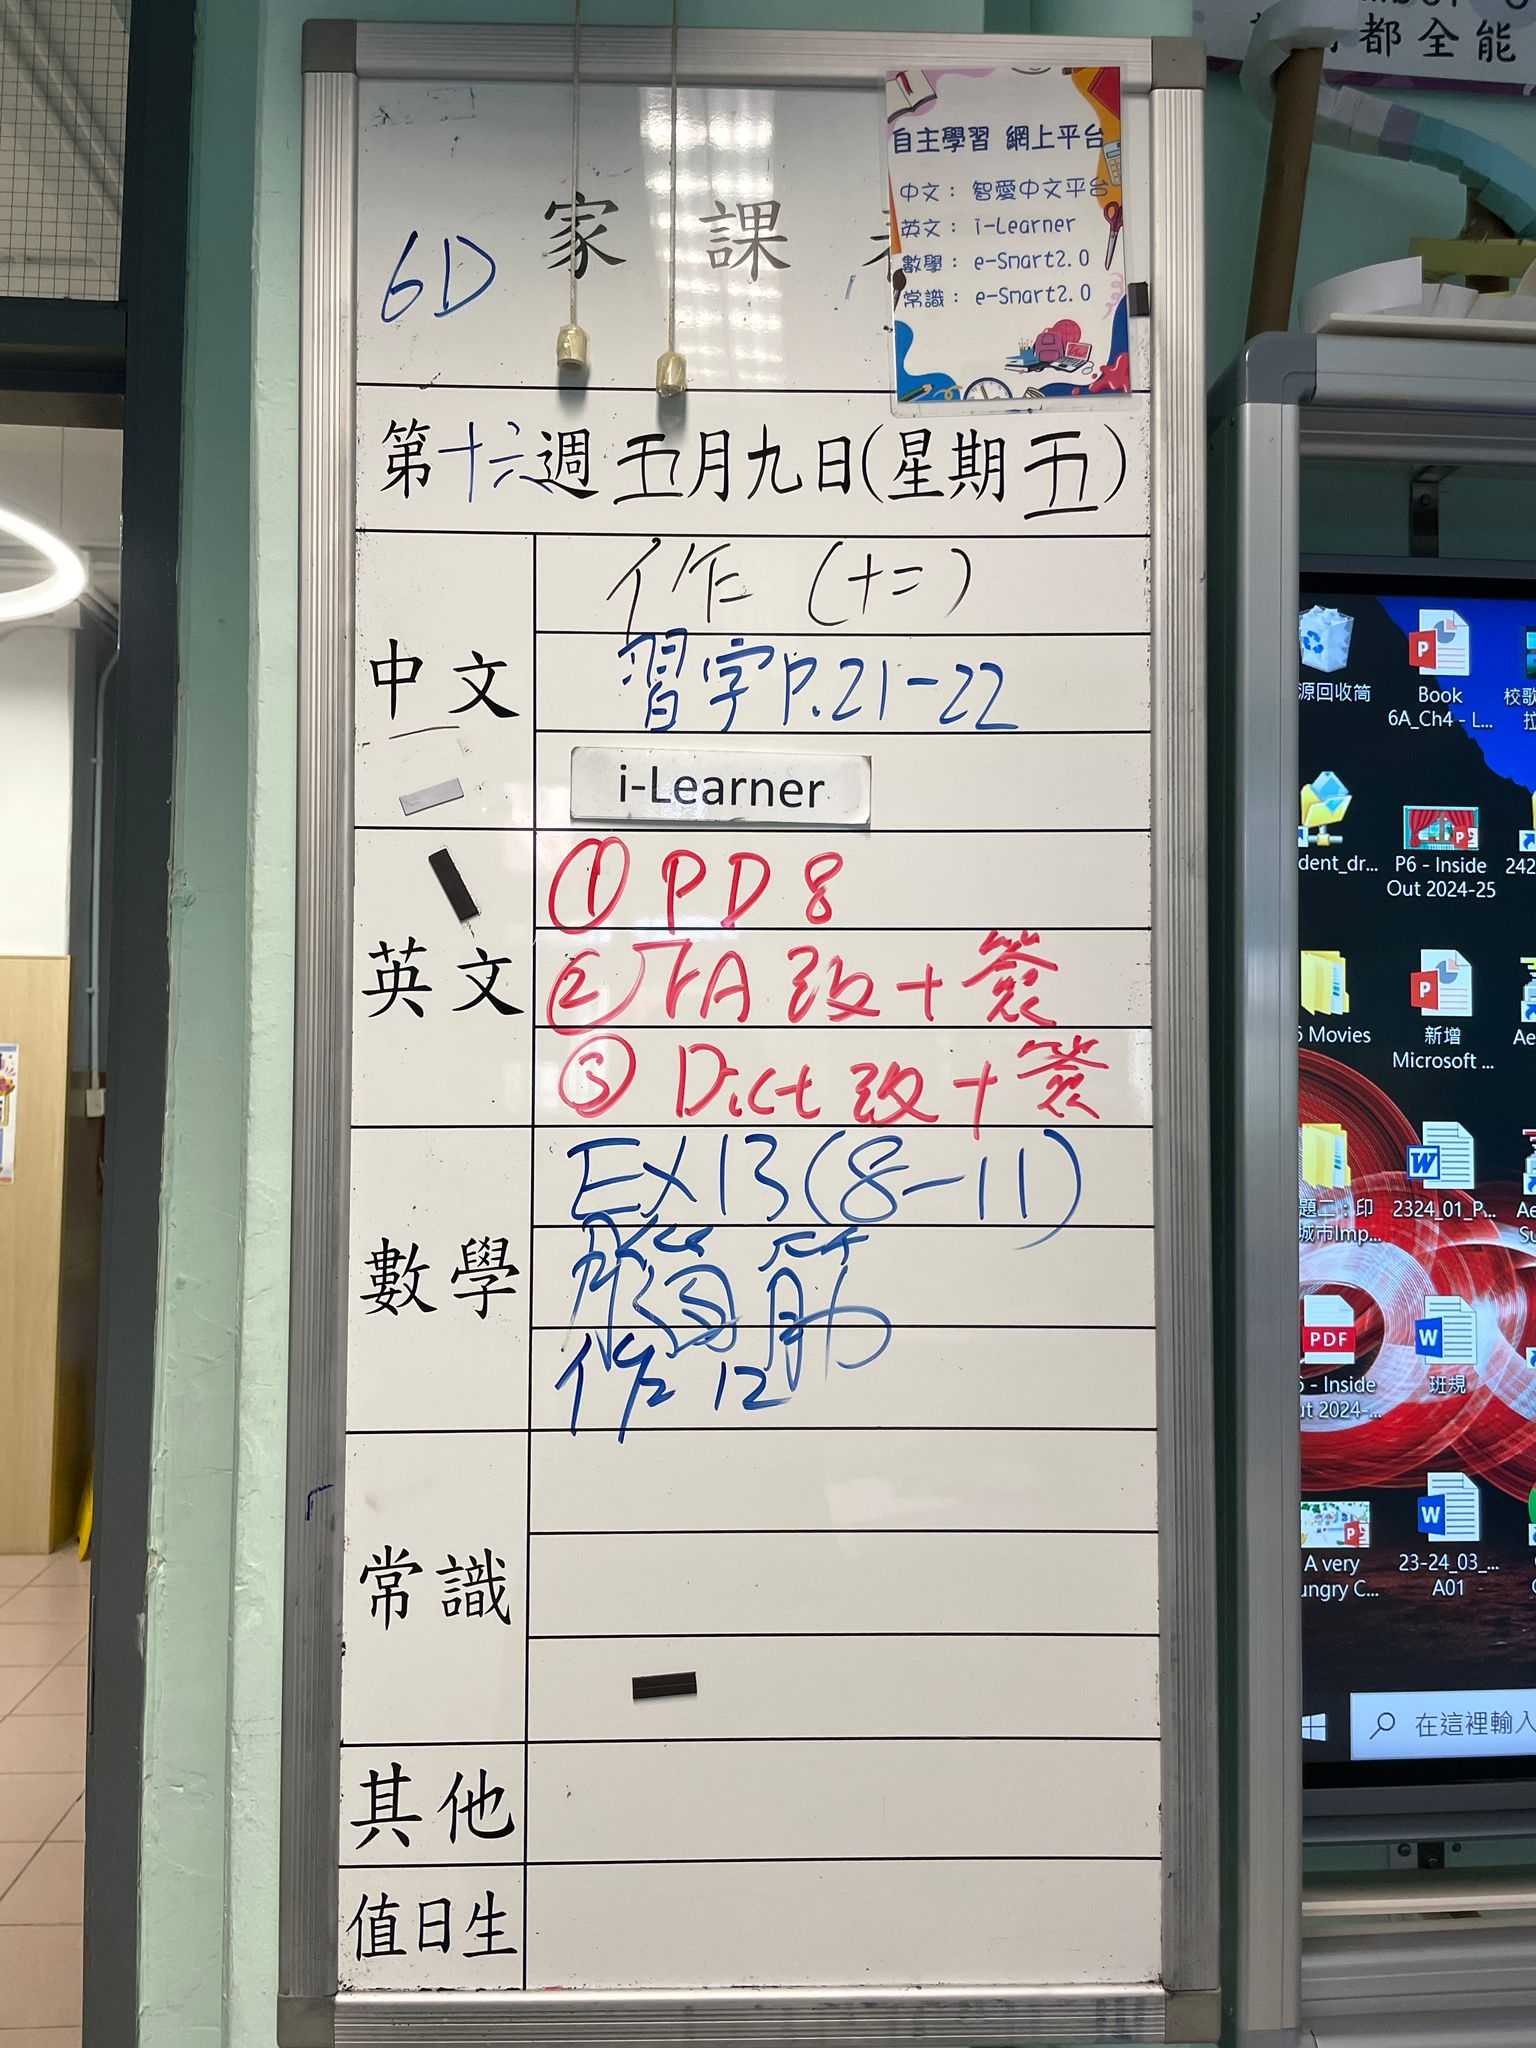 都全能
自主學習 網上平台
中文： 智愛中文平台
英文： i-Learner
數學： e-Smart2.0
常識： e-Smart2.0
6D
家課
第十六週五月九日(星期五)
中文
作 (十二)
習字P.21-22
i-Learner
英文
① PD 8
② TA 改+簽
③ Dict 改+簽
數學
EX13(8-11)
腦筋
作 12
常識
其他
值日生
源回收筒
Book
6A_Ch4 - L...
校歌
dent_dr...
P6 - Inside
Out 2024-25
242
Movies
新增
Microsoft ...
Ae
題二：印
城市Imp...
2324_01_P...
Ae
PDF
- Inside
ut 2024-...
班規
A very
ungry C...
23-24_03_...
A01
在這裡輸入